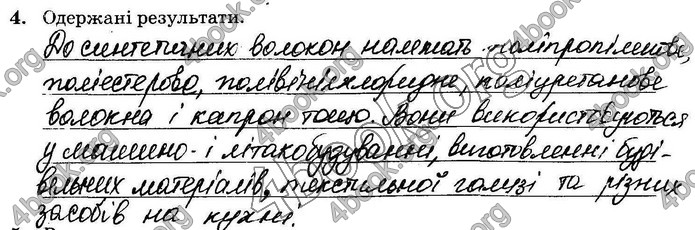 4. Одержані результати.
До синтетичних волокон належать поліпропіленове,
поліестерово, полівінілхлоридне, поліуретанове
волокна і капрон тощо. Вони використовуються
у машино- і літакобудуванні, виготовленні буді-
вельних матеріалів, текстильної галузі та різних
засобів на кухні.